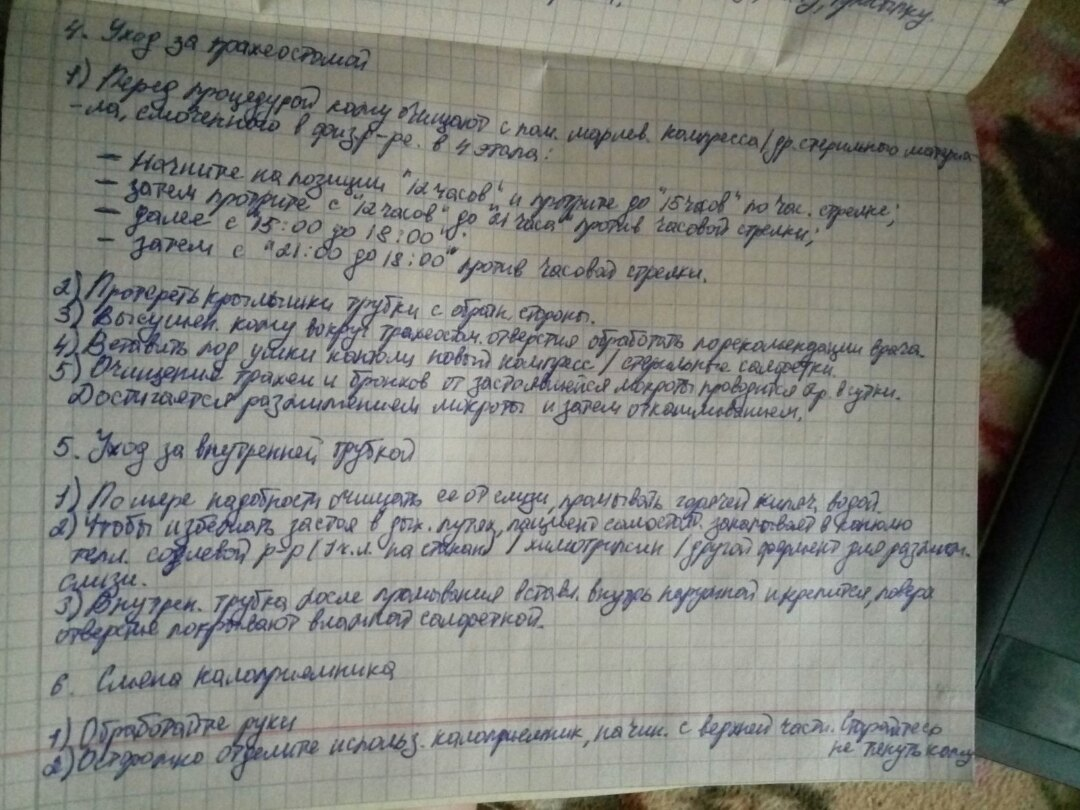 прибылку.
4. Уход за трахеостомой
1) Перед процедурой кожу очищают с пом. марлев. компресса/др.стерильного материа
-ла, смоченного в физ р-ре. в 4 этапа:
– Начните на позиции "12 часов" и протрите до "15 часов" по час. стрелке;
– затем протрите с "12 часов" до "21 часа" против часовой стрелки;
– далее с "15:00 до 18:00".
– затем с "21:00 до 18:00" против часовой стрелки.
2) Протереть крылышки трубки с обрат. стороны.
3) Высушен. кожу вокруг трахеостом. отверстия обработать по рекомендации врача.
4) Вставить под ушки канюли новый компресс / стерильные салфетки.
5) Очищение трахеи и бронхов от застоявшейся мокроты проводится 2р. в сутки.
Достигается разжижением мокроты и затем откашливанием.
5. Уход за внутренней трубкой
1) По мере надобности очищать ее от слизи, промывать горячей кипяч. водой.
2) Чтобы избежать застоя в дых. путях, пациент самостоят. закапывает в канюлю
тепл. солевой р-р (1 ч.л. на стакан) / химотрипсин / другой фермент для разжиж.
слизи.
3) Внутрен. трубка после промывания вставл. внутрь наружной и крепится, поверх
отверстие покрывают влажной салфеткой.
6. Смена калоприемника
1) Обработайте руки
2) Осторожно отделите использ. калоприемник, начин. с верхней части. Старайтесь
не тянуть кожу